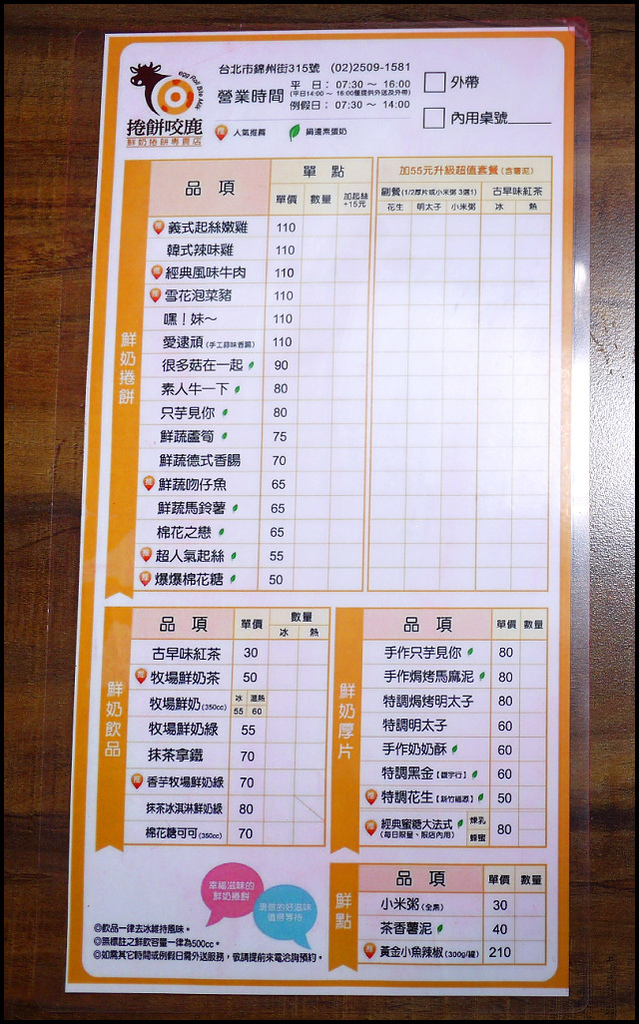 台北市錦州街315號 (02)2509-1581
營業時間 平 日： 07:30 ～ 16:00
(平日14:00 ～ 16:00僅提供外送及外帶)
例假日： 07:30 ～ 14:00
外帶
內用桌號
egg Roll Bite Milu
捲餅咬鹿
鮮奶捲餅專賣店
推 人氣推薦
鍋邊素蛋奶
鮮奶捲餅
品 項
單 點
單價 數量 加起絲+15元
加55元升級超值套餐 (含薯泥)
副餐(1/2厚片或小米粥 3選1) 古早味紅茶
花生 明太子 小米粥 冰 熱
推 義式起絲嫩雞 110
韓式辣味雞 110
推 經典風味牛肉 110
推 雪花泡菜豬 110
嘿！妹～ 110
愛逮頏 (手工蒜味香腸) 110
很多菇在一起 90
素人牛一下 80
只芋見你 80
鮮蔬蘆筍 75
鮮蔬德式香腸 70
推 鮮蔬吻仔魚 65
鮮蔬馬鈴薯 65
棉花之戀 65
推 超人氣起絲 55
推 爆爆棉花糖 50
鮮奶飲品
品 項 單價 數量
冰 熱
古早味紅茶 30
推 牧場鮮奶茶 50
牧場鮮奶(350cc) 冰 55 溫熱 60
牧場鮮奶綠 55
抹茶拿鐵 70
推 香芋牧場鮮奶綠 70
抹茶冰淇淋鮮奶綠 80
棉花糖可可(350cc) 70
鮮奶厚片
品 項 單價 數量
手作只芋見你 80
手作焗烤馬麻泥 80
特調焗烤明太子 80
特調明太子 60
手作奶奶酥 60
特調黑金 60
推 特調花生【新竹福源】 50
推 經典蜜糖大法式 煉乳 蜂蜜 80
(每日限量、限店內用)
鮮點
品 項 單價 數量
小米粥(全素) 30
茶香薯泥 40
推 黃金小魚辣椒 (300g/罐) 210
幸福滋味的
鮮奶捲餅
濃郁的好滋味
值得等待
◎飲品一律去冰維持風味。
◎無標註之鮮飲容量一律為500cc。
◎如需其它時間或例假日需外送服務，敬請提前來電洽詢預約。